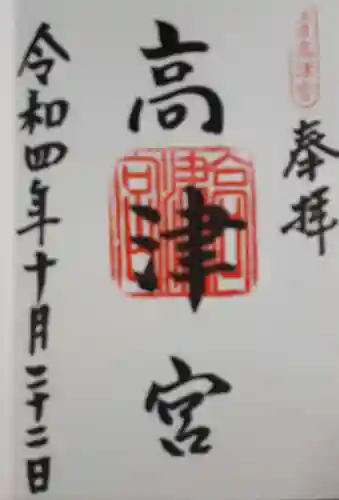 奉拝
高津宮
令和四年十月二十二日